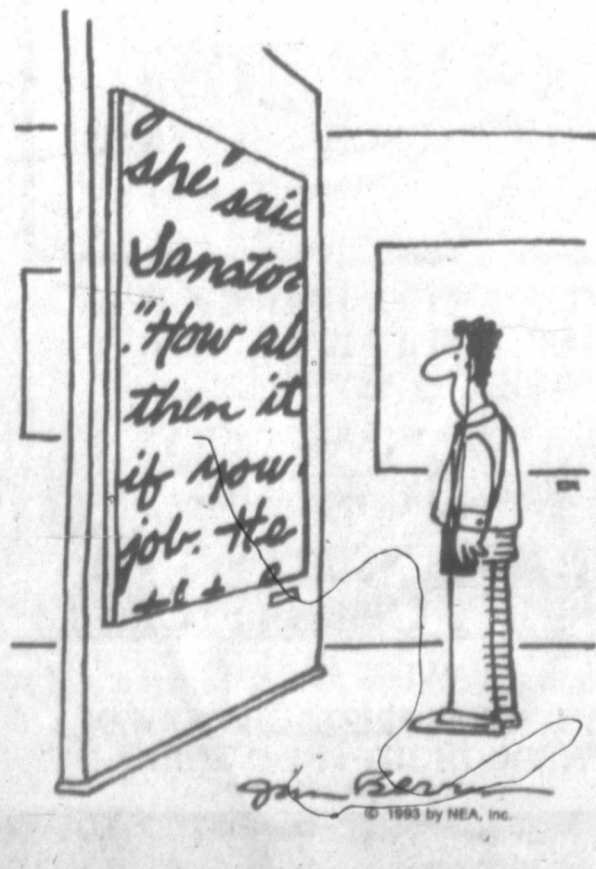 she" said
Sanator
."How ab
then it
if you
job. He
Jim Berry
© 1993 by NEA, Inc.